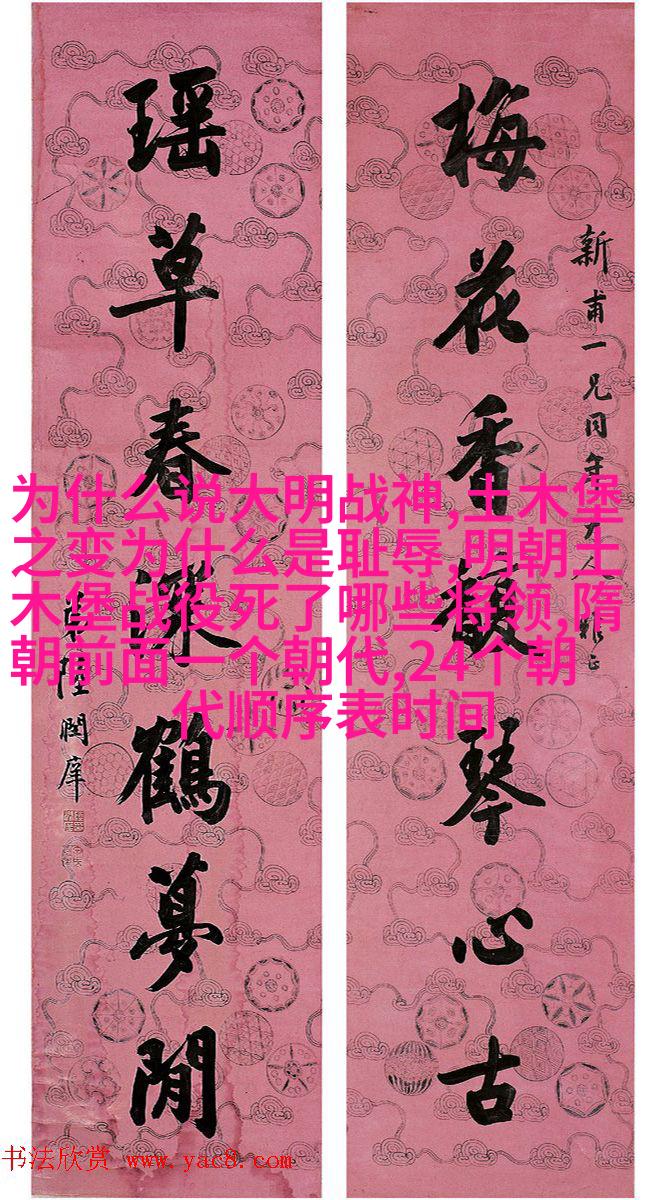 新甫一兄同年大人雅正
梅花香馥琴心古
瑶草春深鶴夢閒
陸潤庠
为什么说大明战神,土木堡
之变为什么是耻辱,明朝土
木堡战役死了哪些将领,隋
朝前面一个朝代,24个朝
代顺序表时间
书法欣赏 www.yac8.com